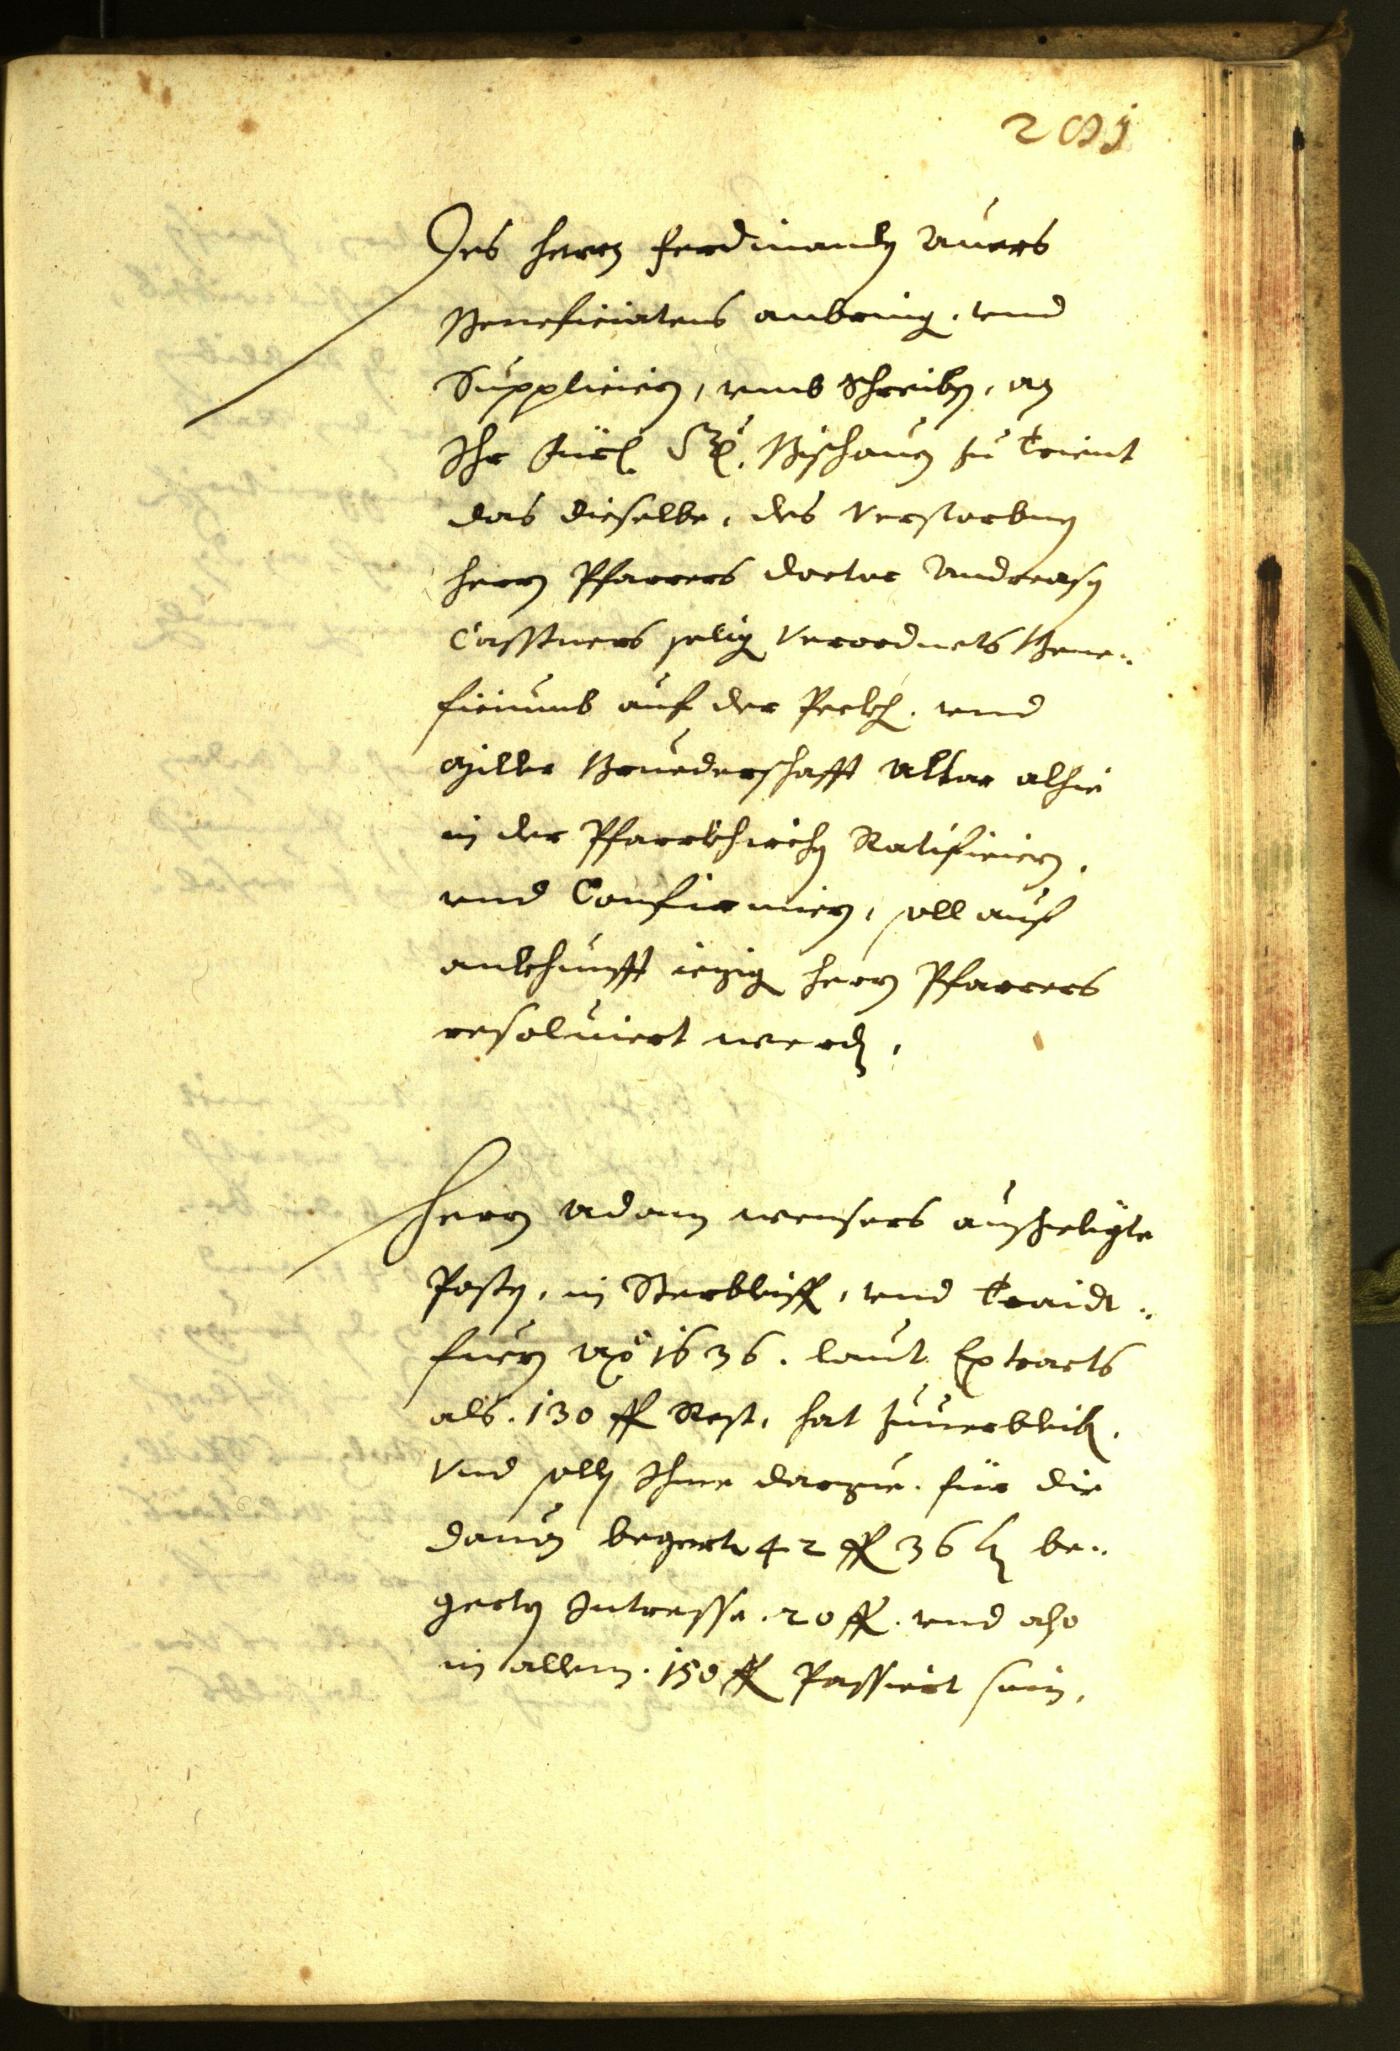 281
Des herrn Ferdinandn Auers
Beneficiatens anbring. vnd
Supplicirn, vmb Schreibn, an
Ihr Fürl. Bischouen zu Trient
das dieselbe, des Verstorbnen
herrn Pfarrers doctor Andreasn
Casstners selig Verordnets Bene„
ficiumb auf der Peckh. vnd
Miller Bruederschafft Altar alhie
in der Pfarrkhirchn Ratificirn,
vnd Confirmirn, soll auf
ankhunfft iezig herrn Pfarrers
resoluiert werdn.
Herrn Adam wensers ausheligte
Posten, in vnd Traidt„
fuern Ao 1636. laut Extracts
als. 130 fl Rest, hat zuuerbleibn.
Vnd solln Ihme darzue. für die
dauon begerte 42 fl 36 kr be„
gertn Intresse. 20 fl. vnd also
in allem. 150 fl Passiert sein.